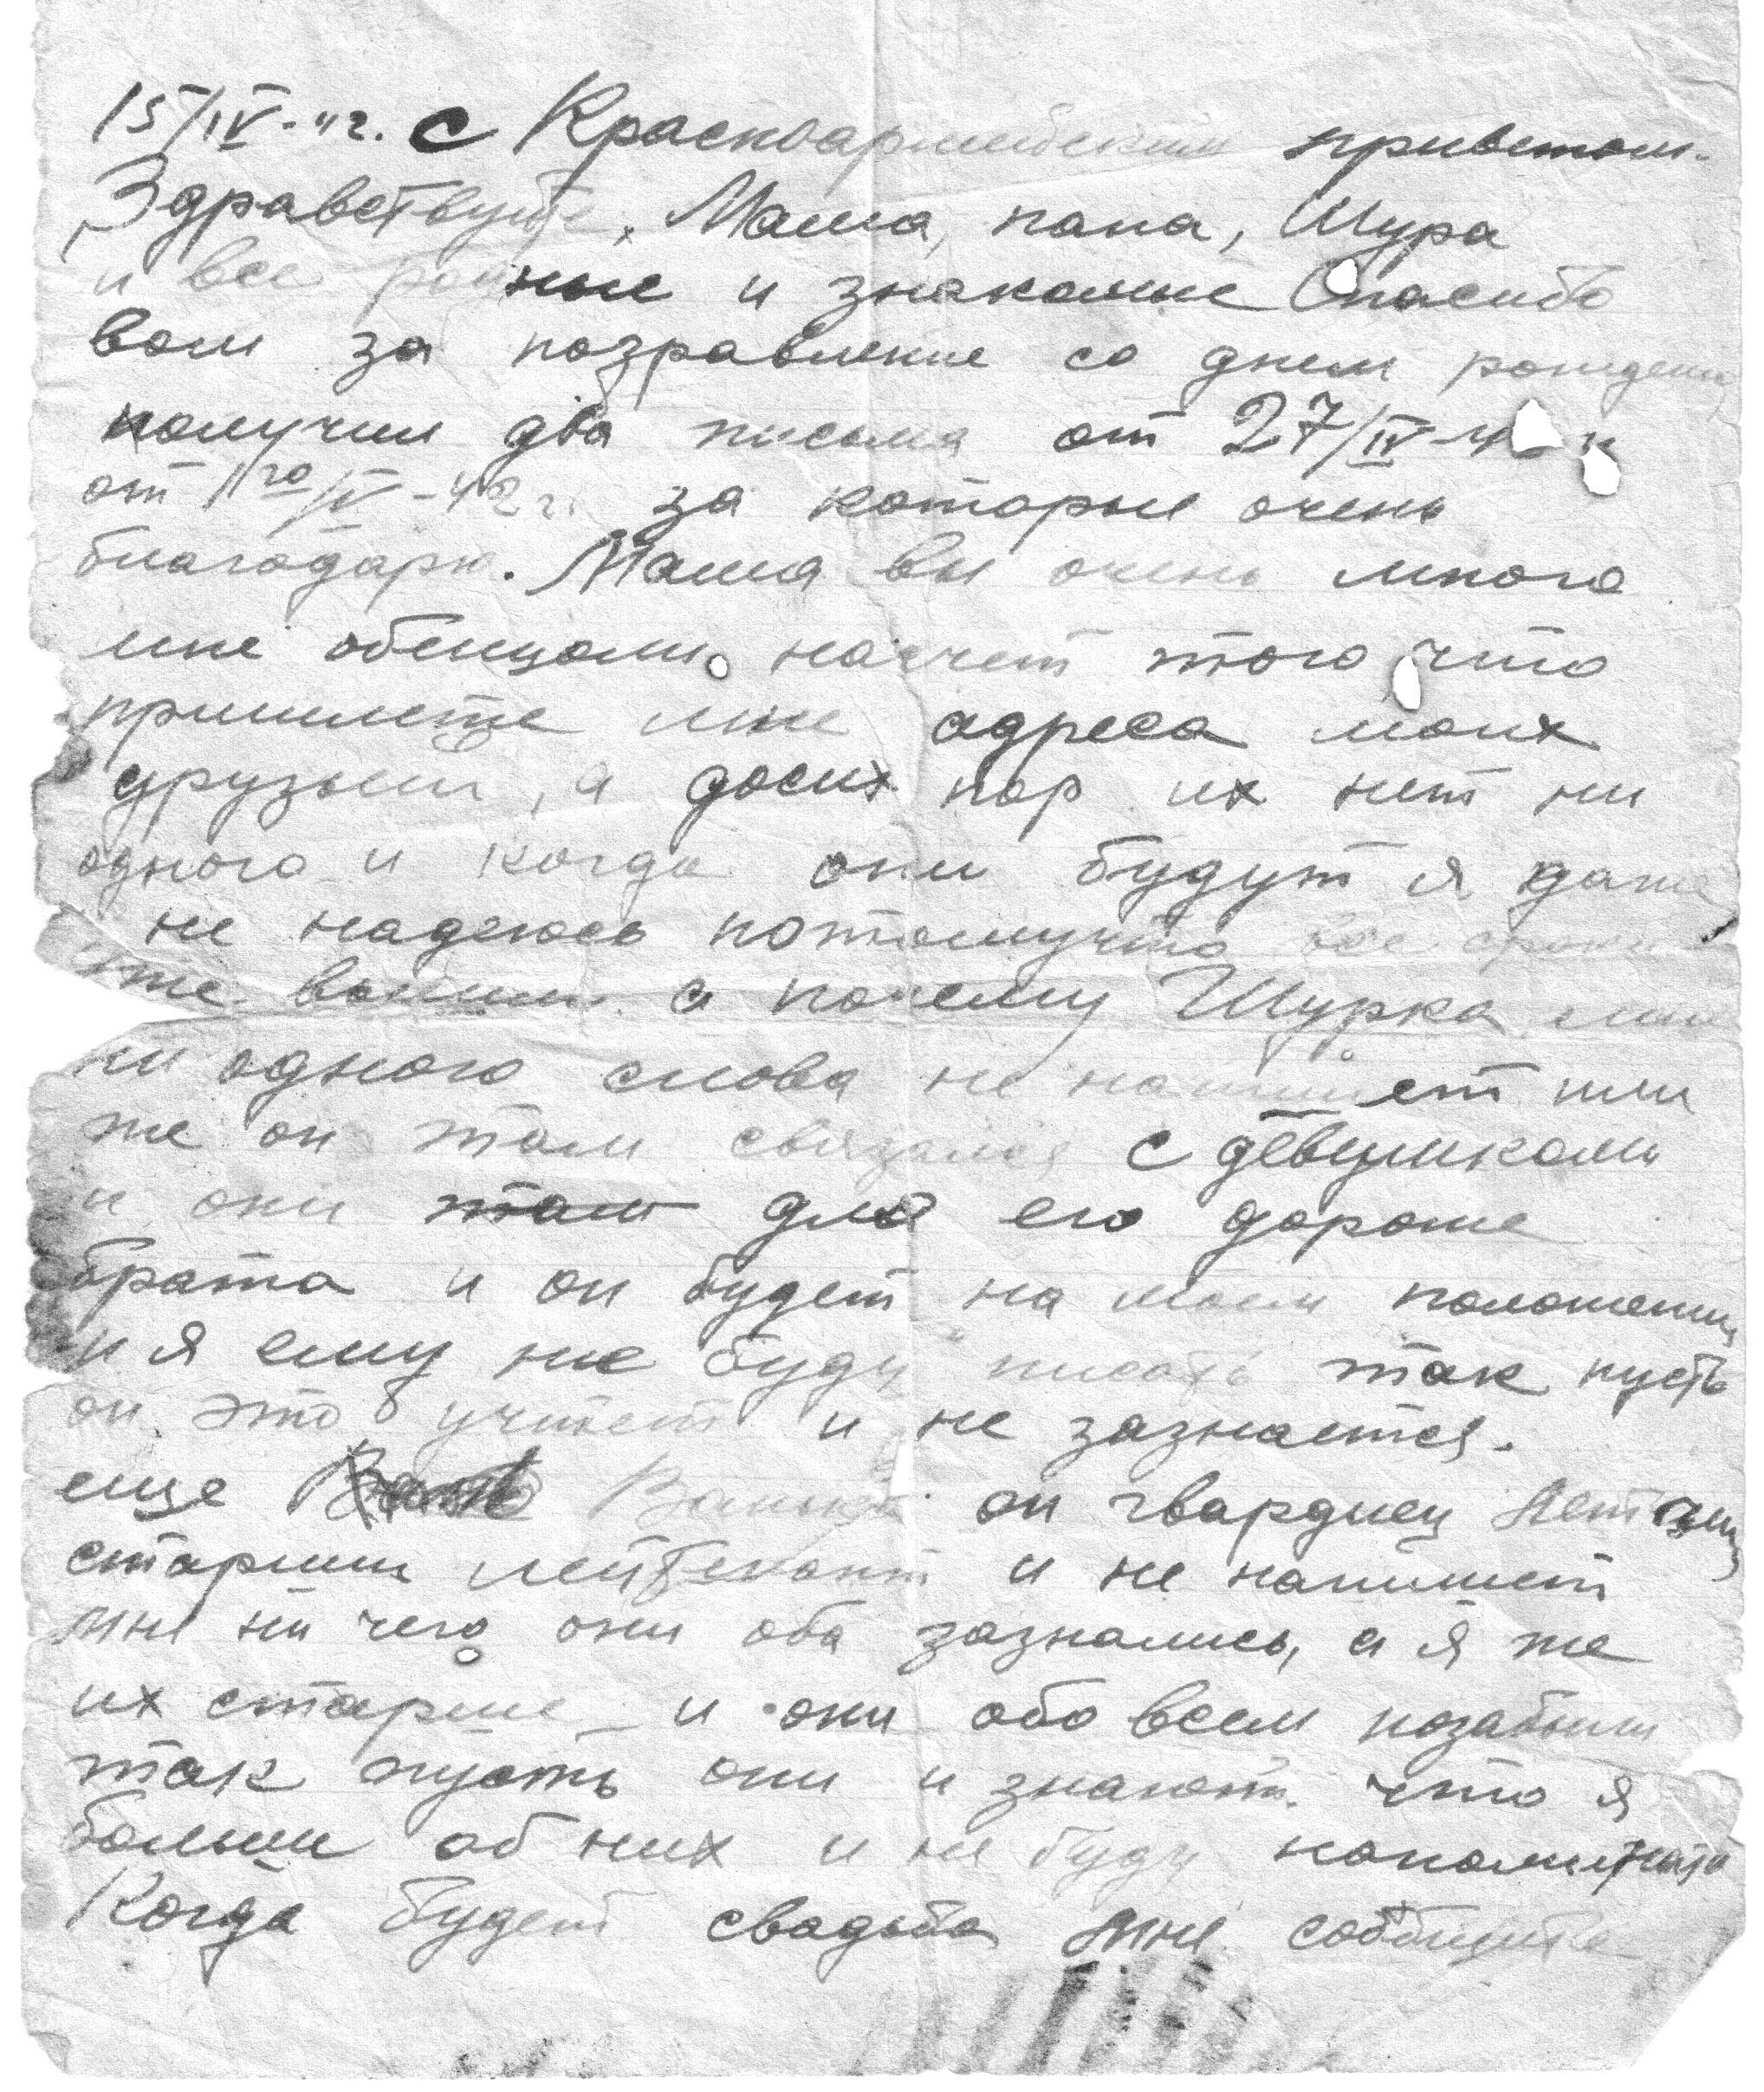 15/IV-42г. С Красноармейским приветом.
Здравствуйте, Мама, папа, Шура
и все родные и знакомые Спасибо
вам за поздравление со днем рождения
получил два письма от 27/IV-4 и
от 1го/V-42г. за которые очень
благодарю. Мама вы очень много
мне обещали насчет того что
пришлете мне адреса моих
друзьей, а досих пор их нет ни
одного и когда они будут я даже
не надеюсь потомучто все сроки
уже вышли. а почему Шурка мне
ни одного слова не напишет или
же он там связался с девушками
и они там для его дороже
брата и он будет на моем положении
и я ему не буду писать так пусть
он это учитет и не зазнается.
еще Ванька он гвардеец
старший лейтенант и не напишет
мне ни чего они оба зазнались, а я же
их старше и они обо всем позабыли
так пусть они и знают. что я
больше об них и не буду напоминать
Когда будет свадьба мне сообщите